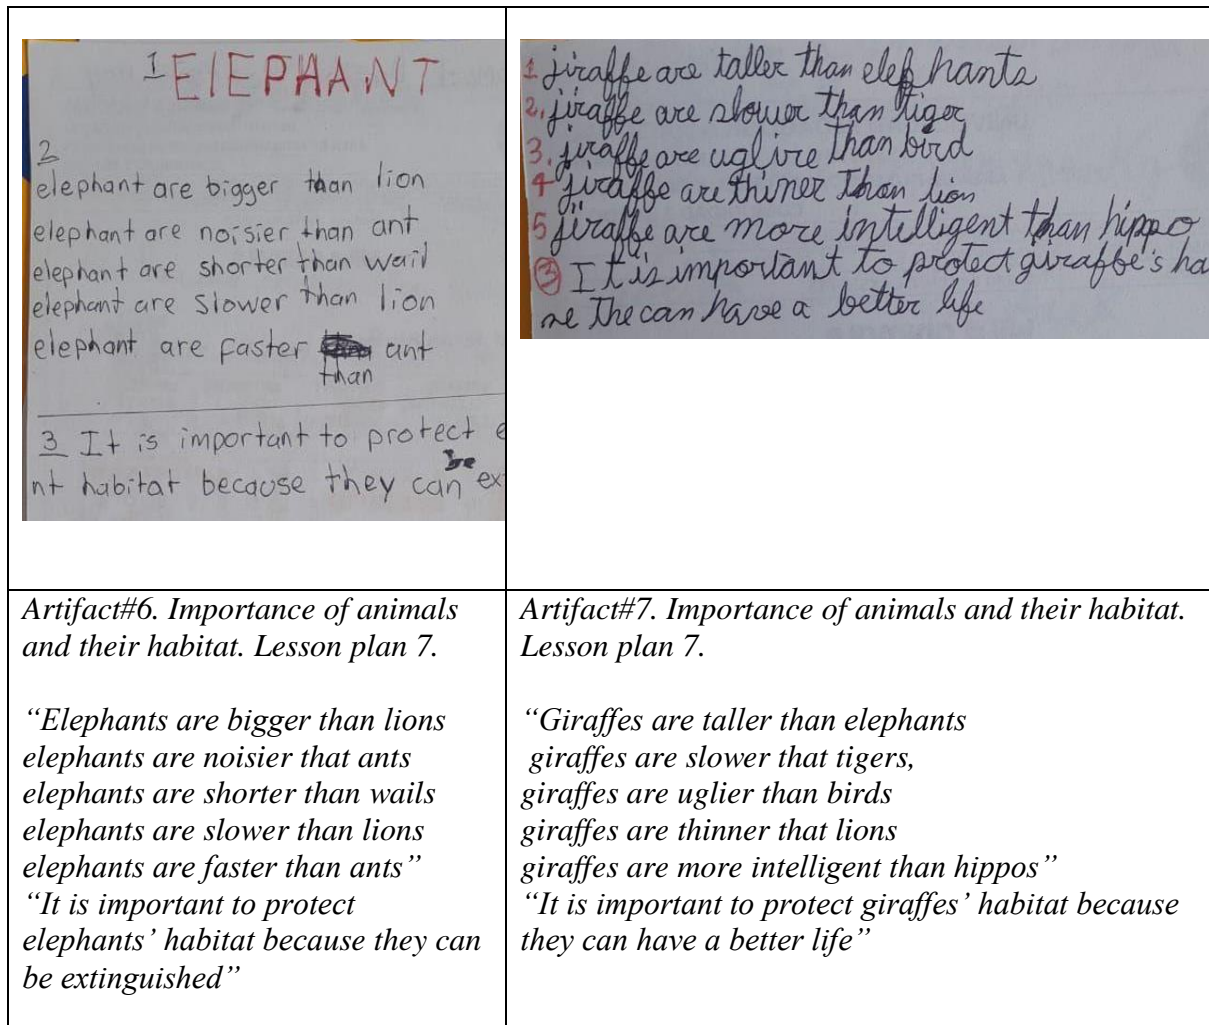 1 ElEPHANT
2
elephant are bigger than lion
elephant are noisier than ant
elephant are shorter than wail
elephant are slower than lion
elephant are faster ant
than
3 It is important to protect e
be
nt habitat because they can ex
1. jiraffe are taller than elephants
2. jiraffe are slower than tiger
3. jiraffe are uglire than bird
4 jiraffe are thiner than lion
5 jiraffe are more intelligent than hippo
3 It is important to protect giraffe's ha
se the can have a better life
Artifact#6. Importance of animals
and their habitat. Lesson plan 7.
“Elephants are bigger than lions
elephants are noisier that ants
elephants are shorter than wails
elephants are slower than lions
elephants are faster than ants”
“It is important to protect
elephants’ habitat because they can
be extinguished”
Artifact#7. Importance of animals and their habitat.
Lesson plan 7.
“Giraffes are taller than elephants
giraffes are slower that tigers,
giraffes are uglier than birds
giraffes are thinner that lions
giraffes are more intelligent than hippos”
“It is important to protect giraffes’ habitat because
they can have a better life”